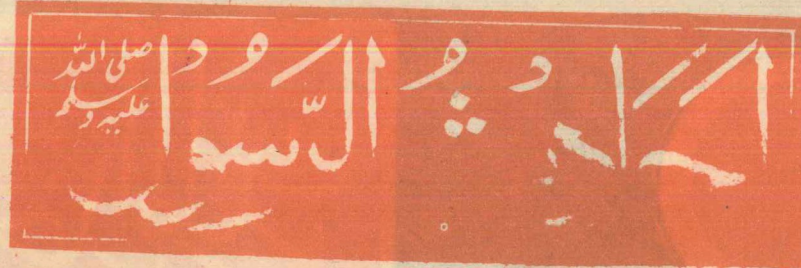 احادیث الرسول صلی اللہ علیہ وسلم